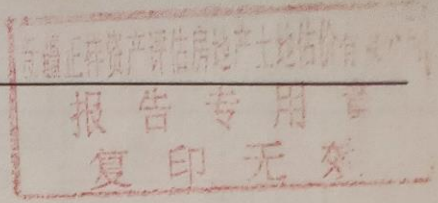 正祥资产评估房地产土地估价有
报告专用章
复印无效